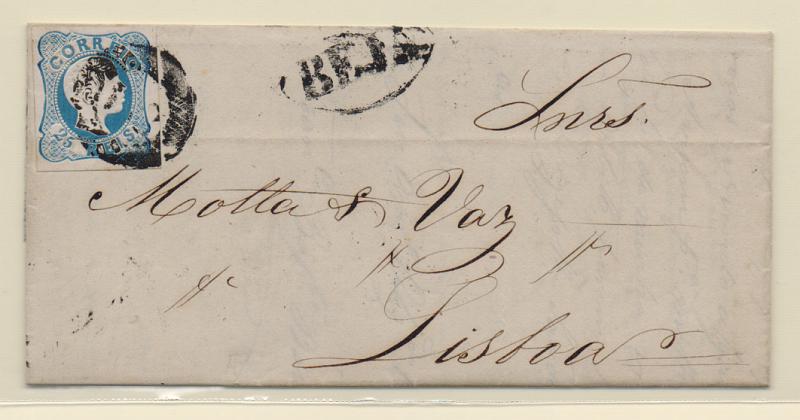 CORREIO
25 REIS
BEJA
Snrs.
Motta & Vaz
Lisboa